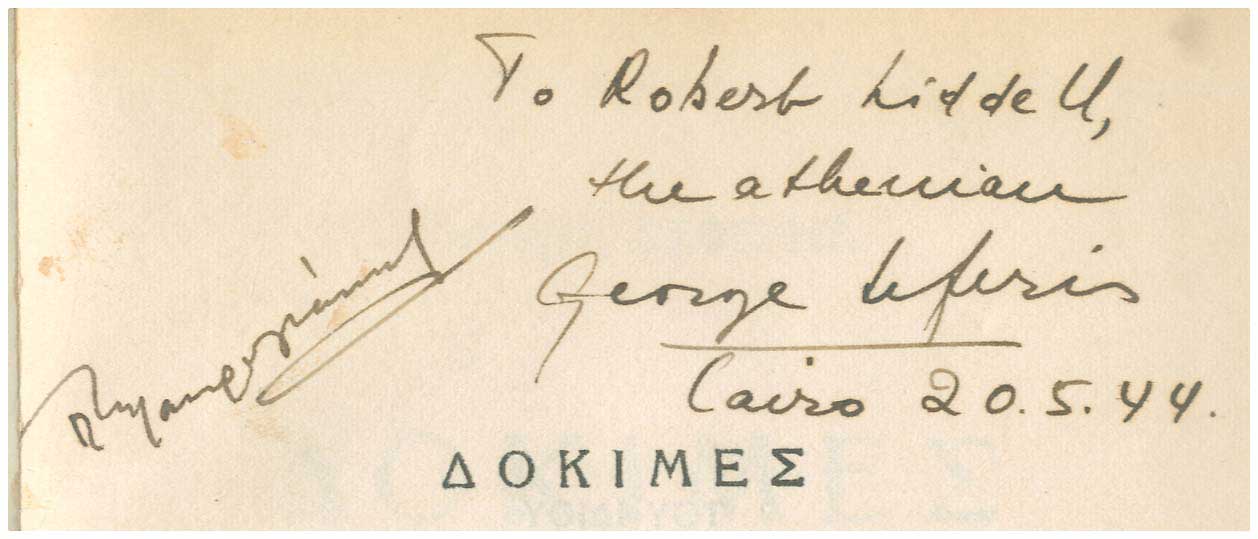 To Robert Liddell,
the athenian
George Seferis
Cairo 20.5.44.
ΔΟΚΙΜΕΣ